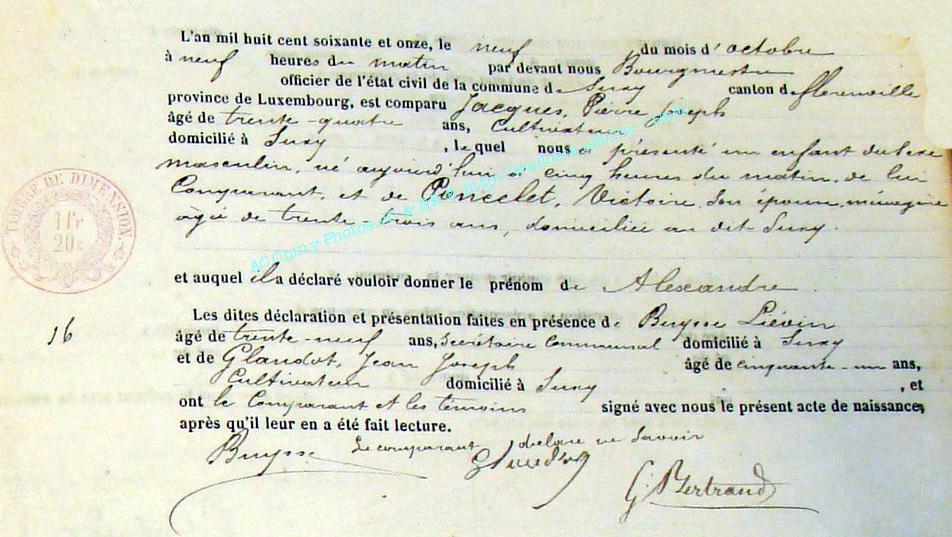 L'an mil huit cent soixante et onze, le neuf du mois d'octobre
à neuf heures du matin par devant nous Bourgmestre
officier de l'état civil de la commune de Suxy canton de florenville
province de Luxembourg, est comparu Jacques, Pierre Joseph
âgé de trente-quatre ans, Cultivateur
domicilié à Suxy, le quel nous a présenté un enfant du sexe
masculin, né aujourd'hui à cinq heures du matin, de lui
Comparant, et de Poncelet, Victoire, son épouse, ménagère
agée de trente trois ans, domiciliée au dit Suxy.
TIMBRE DE DIMENSION
1 fr
20 c
et auquel il a déclaré vouloir donner le prénom de Alexandre
16
Les dites déclaration et présentation faites en présence de Buysse Liévin
âgé de trente-neuf ans, Secrétaire Communal domicilié à Suxy
et de Glaudot, Jean Joseph âgé de cinquante-un ans,
Cultivateur domicilié à Suxy, et
ont le Comparant et les témoins signé avec nous le présent acte de naissance,
après qu'il leur en a été fait lecture.
Le comparant déclare ne savoir
Buysse Glaudot
G. Bertrand
AC Chiny Photos